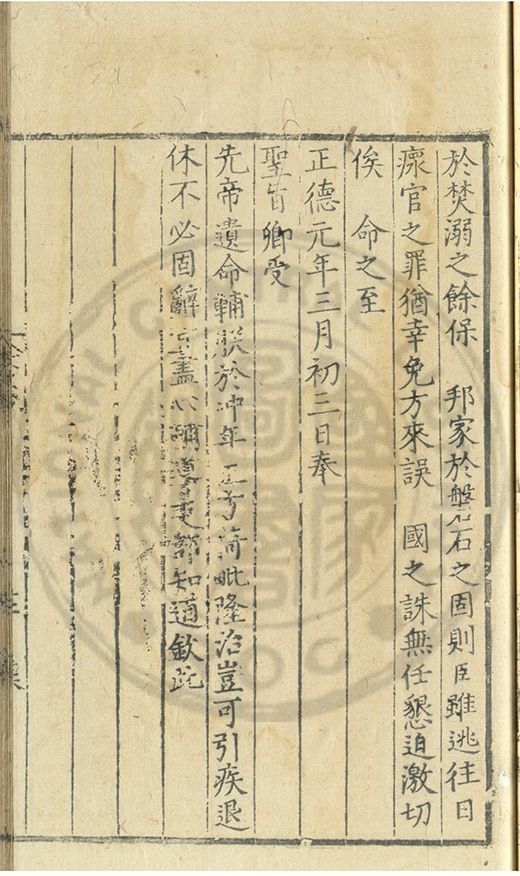 於焚溺之餘保　邦家於磐石之固則臣雖逃往日
瘝官之罪猶幸免方來誤　國之誅無任懇迫激切
俟　命之至
正德元年三月初三日奉
聖旨卿受
先帝遺命輔朕於沖年正方倚毗隆治豈可引疾退
休不必固辭宜盡心輔導吏部知道欽此